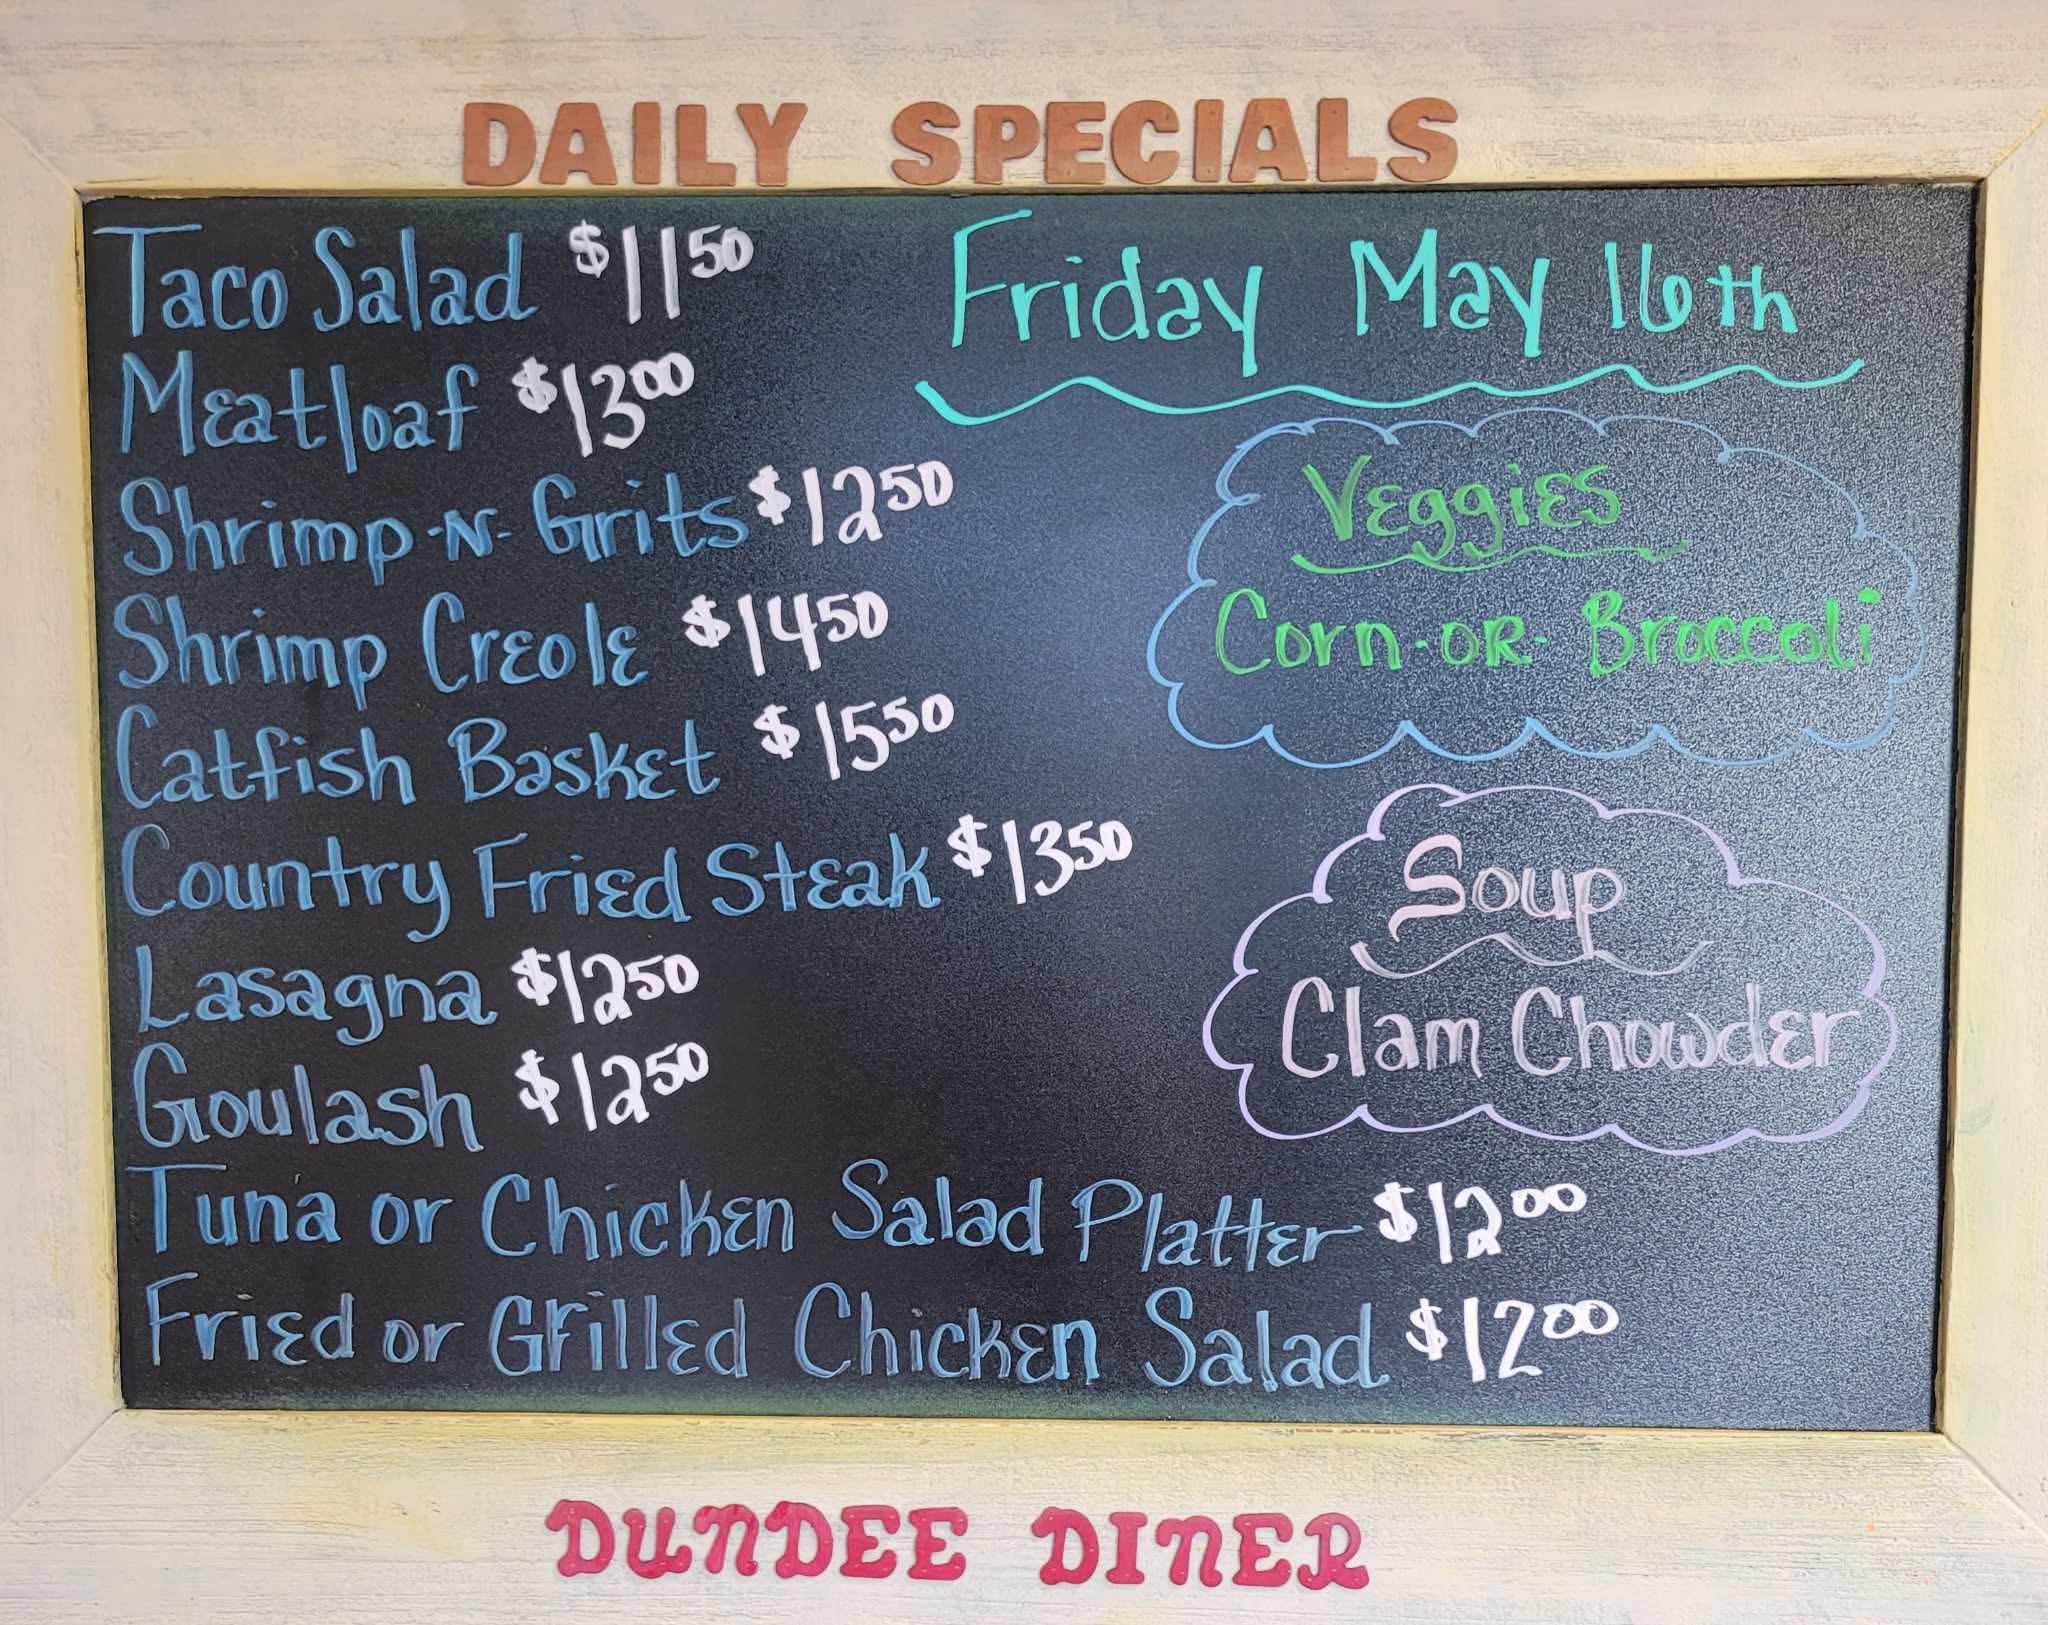 DAILY SPECIALS
Taco Salad $1150
Meatloaf $1300
Shrimp-N-Grits $1250
Shrimp Creole $1450
Catfish Basket $1550
Country Fried Steak $1350
Lasagna $1250
Goulash $1250
Tuna or Chicken Salad Platter $1200
Fried or Grilled Chicken Salad $1200
Friday May 16th
Veggies
Corn-OR-Broccoli
Soup
Clam Chowder
DUNDEE DINER